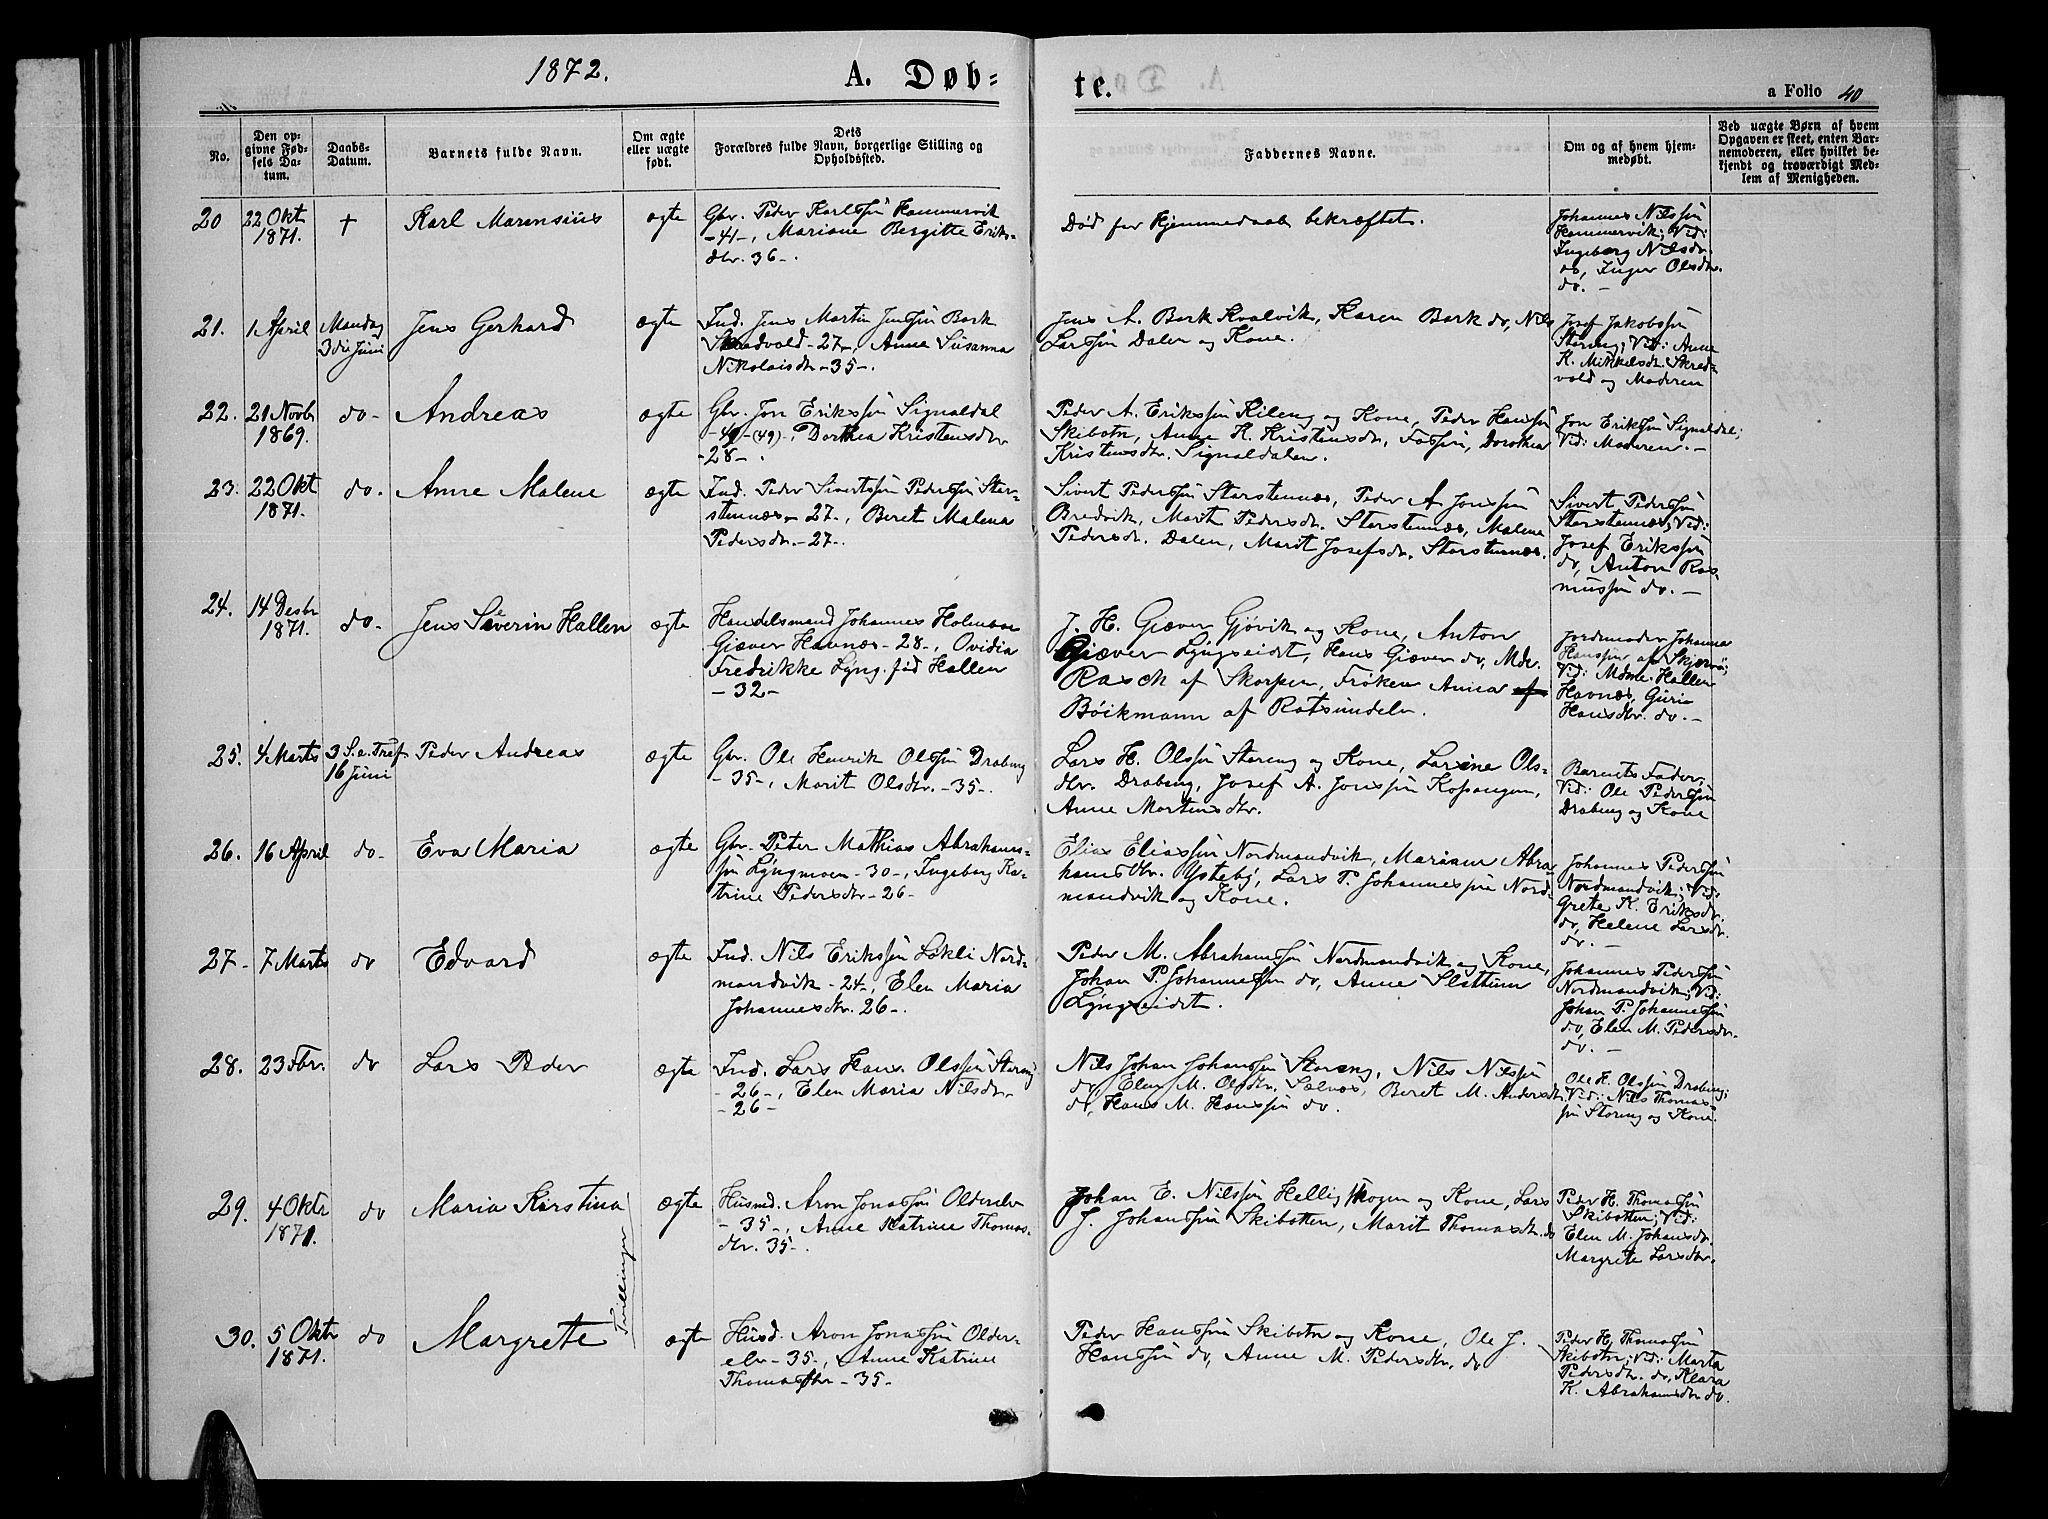 1872.
A. Døb=
te.
a Folio 40
No.
Den op-
givne Fød-
sels Da-
tum.
Daabs-
Datum.
Barnets fulde Navn.
Om ægte
eller uægte
født.
Dets
Forældres fulde Navn, borgerlige Stilling og
Opholdssted.
Faddernes Navne.
Om og af hvem hjem-
medøbt.
Ved uægte Børn af hvem
Opgaven er skeet, enten Bar-
nemoderen, eller hvilket be-
kjendt og troværdigt Med-
lem af Menigheden.
20
22 Okt
1871.
†
Karl Marensius
ægte
Gbr. Peder Karlssøn Hammervik
-41-, Mariane Bergitte Eriks-
dtr. 36-.
Død før Hjemmedaab bekræftet.
Johannes Nilssøn
Hammervik; Vid:
Ingeborg Nilsdtr.
do, Inger Olsdtr.
do. -
21.
1 April
Mandag
3die Juni
Jens Gerhard
ægte
Ind. Jens Martin Jenssøn Bark
Skredvold -27-, Anne Susanna
Nikolaisdtr -35-.
Jens A. Bark Kvalvik, Karen Bark do, Nils
Larssøn Dalen og Kone.
Josef Jakobssøn
Storeng; Vid: Anne
K. Mikkelsdtr. Skred-
vold og Moderen
22.
21 Novbr
1869.
do-
Andreas
ægte
Gbr. Jon Erikssøn Signaldal
-49-(49)-, Dorthea Kristensdtr
-28-.
Peder A. Erikssøn Kileng og Kone, Peder Hanssøn
Skibotn, Anne K. Kristensdtr, Fossen, Dorothea
Kristensdtr. Signaldalen.
Jon Erikssøn Signaldal;
Vid: Moderen. -
23.
22 Okt
1871.
do.
Anne Malene
ægte
Ind. Peder Sivertssøn Pederssøn Stor-
stennæs -27-, Beret Malena
Pedersdtr. -27-.
Sivert Pederssøn Storstennæs, Peder A. Jonssøn
Bredvik, Marit Pedersdtr. Storstennæs, Malene
Pedersdtr. Dalen, Marit Josefsdtr. Storstennæs.
Sivert Pederssøn
Storstennæs; Vid:
Josef Erikssøn
do, Anton Ras-
mussøn do. -
24.
14 Desbr
1871.
do-
Jens Severin Hallen
ægte
Handelsmand Johannes Holmboe
Giæver Havnæs -28-, Ovidia
Fredrikke Lyng. fød Hallen
-32-
J. H. Giæver Gjøvik og Kone, Anton
Giæver Lyngseidet, Hans Giæver do, Mdr.
Rasch af Skorpen, Frøken Anna af
Bøickmann af Rotsundelv.
Jordmoder Johanna
Hanssen af Skjærvø;
Vid: Mdme. Hallen
Havnæs, Guria
Hansdtr. do. -
25.
4 Marts
3 S. e. Tref.
16 Juni
Peder Andreas
ægte
Gbr. Ole Henrik Olssøn Drabeng
-35-, Marit Olsdtr. -35-.
Lars H. Olssøn Storeng og Kone, Larsine Ols-
dtr. Drabeng, Josef A. Jonssøn Kopangen,
Anne Mortensdtr.
Barnets Fader;
Vid: Ole Pederssøn
Drabeng og Kone
26.
16 April
do-
Eva Maria
ægte
Gbr. Peter Mathias Abrahams-
søn Lyngmoen -30-, Ingeborg Ka-
trine Pedersdtr -26-
Elias Eliassøn Nordmandvik, Mariann Abra-
hamsdtr. Ysteby, Lars P. Johannessøn Nord-
mandvik og Kone.
Johannes Pederssøn
Nordmandvik; Vid:
Grete K. Eriksdtr.
do, Helene Larsdtr.
do. -
27-
7 Marts
do
Edvard
ægte
Ind. Nils Erikssøn Løkli Nord-
mandvik -24-, Elen Maria
Johannesdtr. 26-.
Peder M. Abrahamssøn Nordmandvik og Kone,
Johan P. Johannessøn do, Anne Slettum
Lyngseidet.
Johannes Pederssøn
Nordmandvik; Vid:
Johan P. Johannessøn
do, Elen M. Pedersdtr.
do. -
28.
23 Fbr.
do
Lars Peder
ægte
Ind. Lars Hans. Olssøn Storeng
-26-, Elen Maria Nilsdtr.
-26-
Nils Johan Johanssøn Storeng, Nils Nilssøn
do, Elen M. Olsdtr. Solnæs, Beret M. Andersdtr.
do, Hans M. Hanssøn do.
Ole H. Olssøn Drabeng;
Vid: Nils Thomas-
søn Storeng og Kone.
29.
4 Oktr
1871.
do
Maria Kirstina
Tvillinger
ægte
Husmd. Aron Jonassøn Olderelv
-35-, Anne Katrine Thomas-
dtr. 35-.
Johan E. Nilssøn Helligskogen og Kone, Lars
J. Johanssøn Skibotten, Marit Thomasdtr. do
Peder H. Thomassøn
Skibotten; Vid:
Elen M. Johansdtr.
Margrete Larsdtr.
30.
5 Oktr
1871.
do
Margrete
ægte
Husd. Aron Jonassøn Older-
elv -35-, Anne Katrine
Thomasdtr -35-
Peder Hanssøn Skibotn og Kone, Ole J.
Hanssøn do, Anne M. Pedersdtr. do
Peder H. Thomassøn
Skibotn; Vid: Marta
Pedersdtr. do, Klara
K. Abrahamsdtr do.